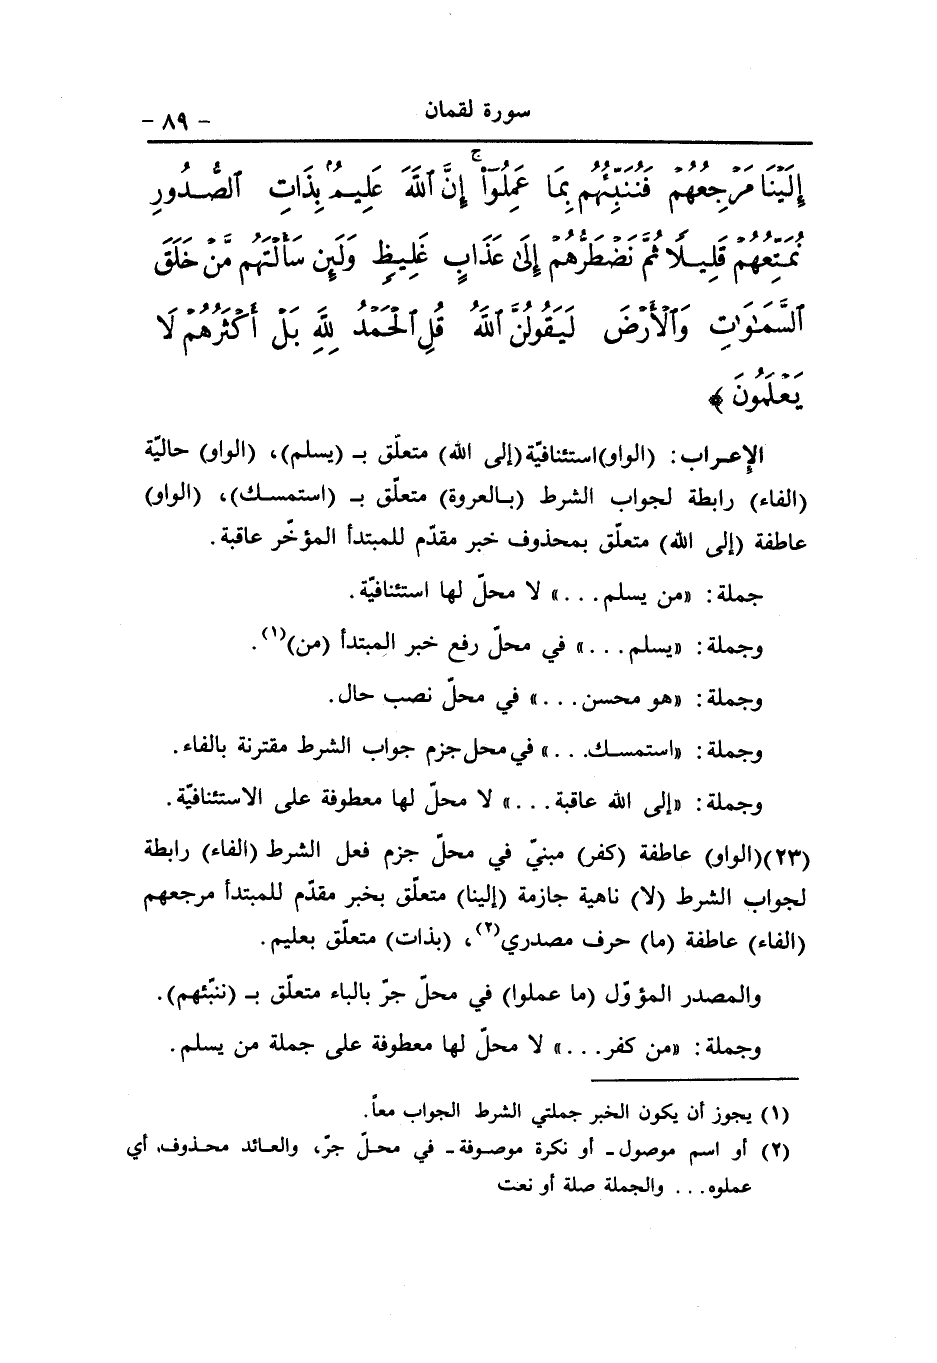 سورة لقمان
- ٨٩ -
إِلَيْنَا مَرْجِعُهُمْ فَنُنَبِّئُهُم بِمَا عَمِلُوٓا۟ ۚ إِنَّ ٱللَّهَ عَلِيمٌۢ بِذَاتِ ٱلصُّدُورِ
نُمَتِّعُهُمْ قَلِيلًا ثُمَّ نَضْطَرُّهُمْ إِلَىٰ عَذَابٍ غَلِيظٍ وَلَئِن سَأَلْتَهُم مَّنْ خَلَقَ
ٱلسَّمَٰوَٰتِ وَٱلْأَرْضَ لَيَقُولُنَّ ٱللَّهُ قُلِ ٱلْحَمْدُ لِلَّهِ بَلْ أَكْثَرُهُمْ لَا
يَعْلَمُونَ ﴾
الإعراب: (الواو)استئنافيّة(إلى الله) متعلّق بـ (يسلم)، (الواو) حاليّة
(الفاء) رابطة لجواب الشرط (بالعروة) متعلّق بـ (استمسك)، (الواو)
عاطفة (إلى الله) متعلّق بمحذوف خبر مقدّم للمبتدأ المؤخّر عاقبة.
جملة: «من يسلم...» لا محلّ لها استئنافيّة.
وجملة: «يسلم...» في محلّ رفع خبر المبتدأ (من)(١).
وجملة: «هو محسن...» في محلّ نصب حال.
وجملة: «استمسك...» في محل جزم جواب الشرط مقترنة بالفاء.
وجملة: «إلى الله عاقبة...» لا محلّ لها معطوفة على الاستئنافيّة.
(٢٣)(الواو) عاطفة (كفر) مبنيّ في محلّ جزم فعل الشرط (الفاء) رابطة
لجواب الشرط (لا) ناهية جازمة (إلينا) متعلّق بخبر مقدّم للمبتدأ مرجعهم
(الفاء) عاطفة (ما) حرف مصدري(٢)، (بذات) متعلّق بعليم.
والمصدر المؤوّل (ما عملوا) في محلّ جرّ بالباء متعلّق بـ (ننبّئهم).
وجملة: «من كفر...» لا محلّ لها معطوفة على جملة من يسلم.
(١) يجوز أن يكون الخبر جملتي الشرط الجواب معاً.
(٢) أو اسم موصول - أو نكرة موصوفة - في محلّ جرّ، والعائد محذوف، أي
عملوه... والجملة صلة أو نعت